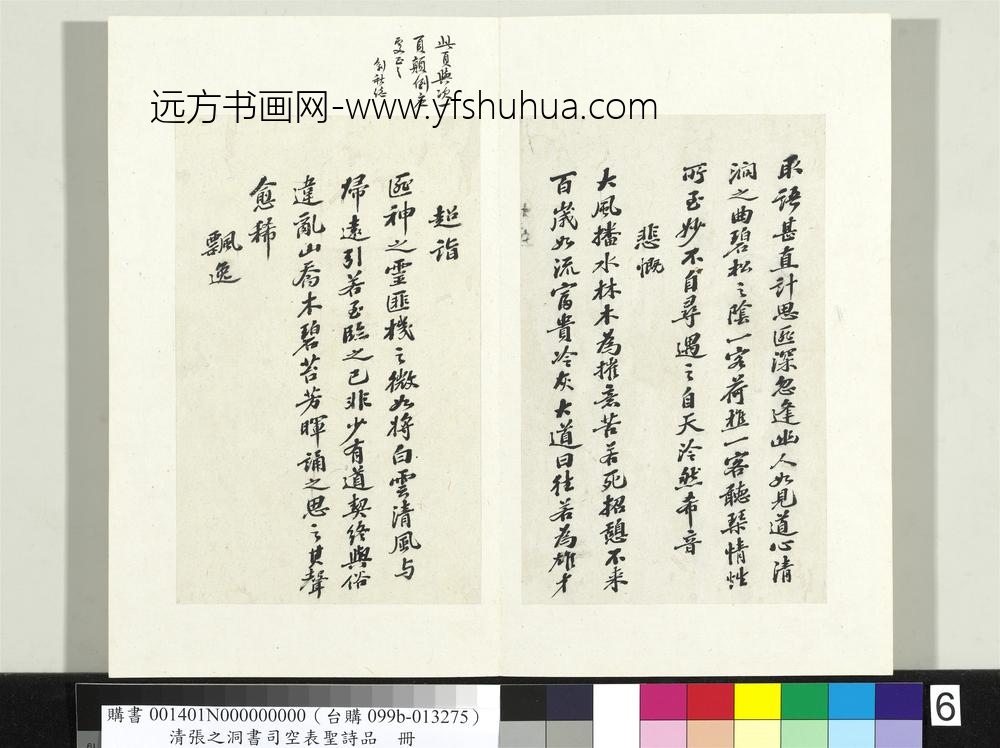 远方书画网-www.yfshuhua.com
此頁與次
頁顛倒
取語甚直計思匪深忽逢幽人如見道心清
澗之曲碧松之陰一客荷樵一客聽琴情性
所至妙不自尋遇之自天泠然希音
悲慨
大風捲水林木為摧意苦若死招憩不来
百歲如流富貴冷灰大道日往若為雄才
超詣
匪神之靈匪機之微如將白雲清風与
歸遠引若至臨之已非少有道契終與俗
違亂山喬木碧苔芳暉誦之思之其聲
愈稀
飄逸
購書 001401N000000000（台購 099b-013275）
清張之洞書司空表聖詩品 冊
6